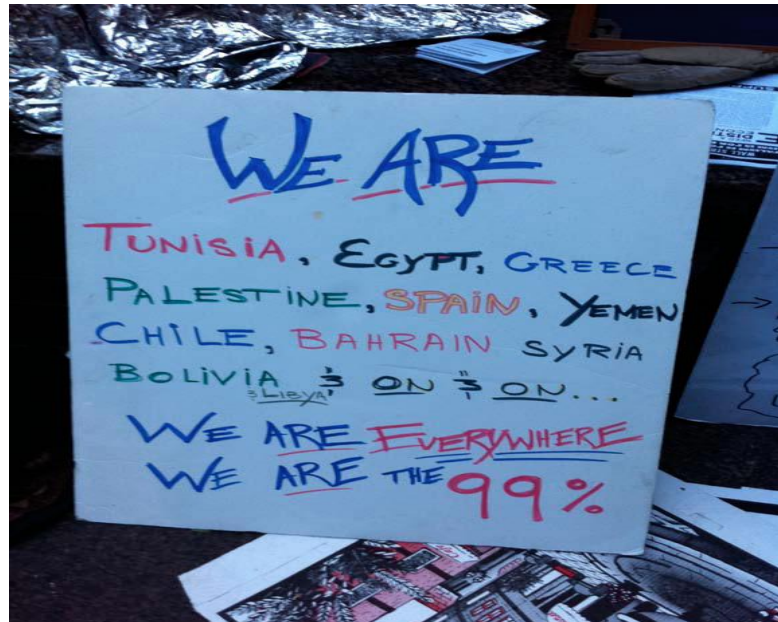 WE ARE
TUNISIA, EGYPT, GREECE
PALESTINE, SPAIN, YEMEN
CHILE, BAHRAIN SYRIA
BOLIVIA & ON & ON...
& LIBYA
WE ARE EVERYWHERE
WE ARE THE 99%